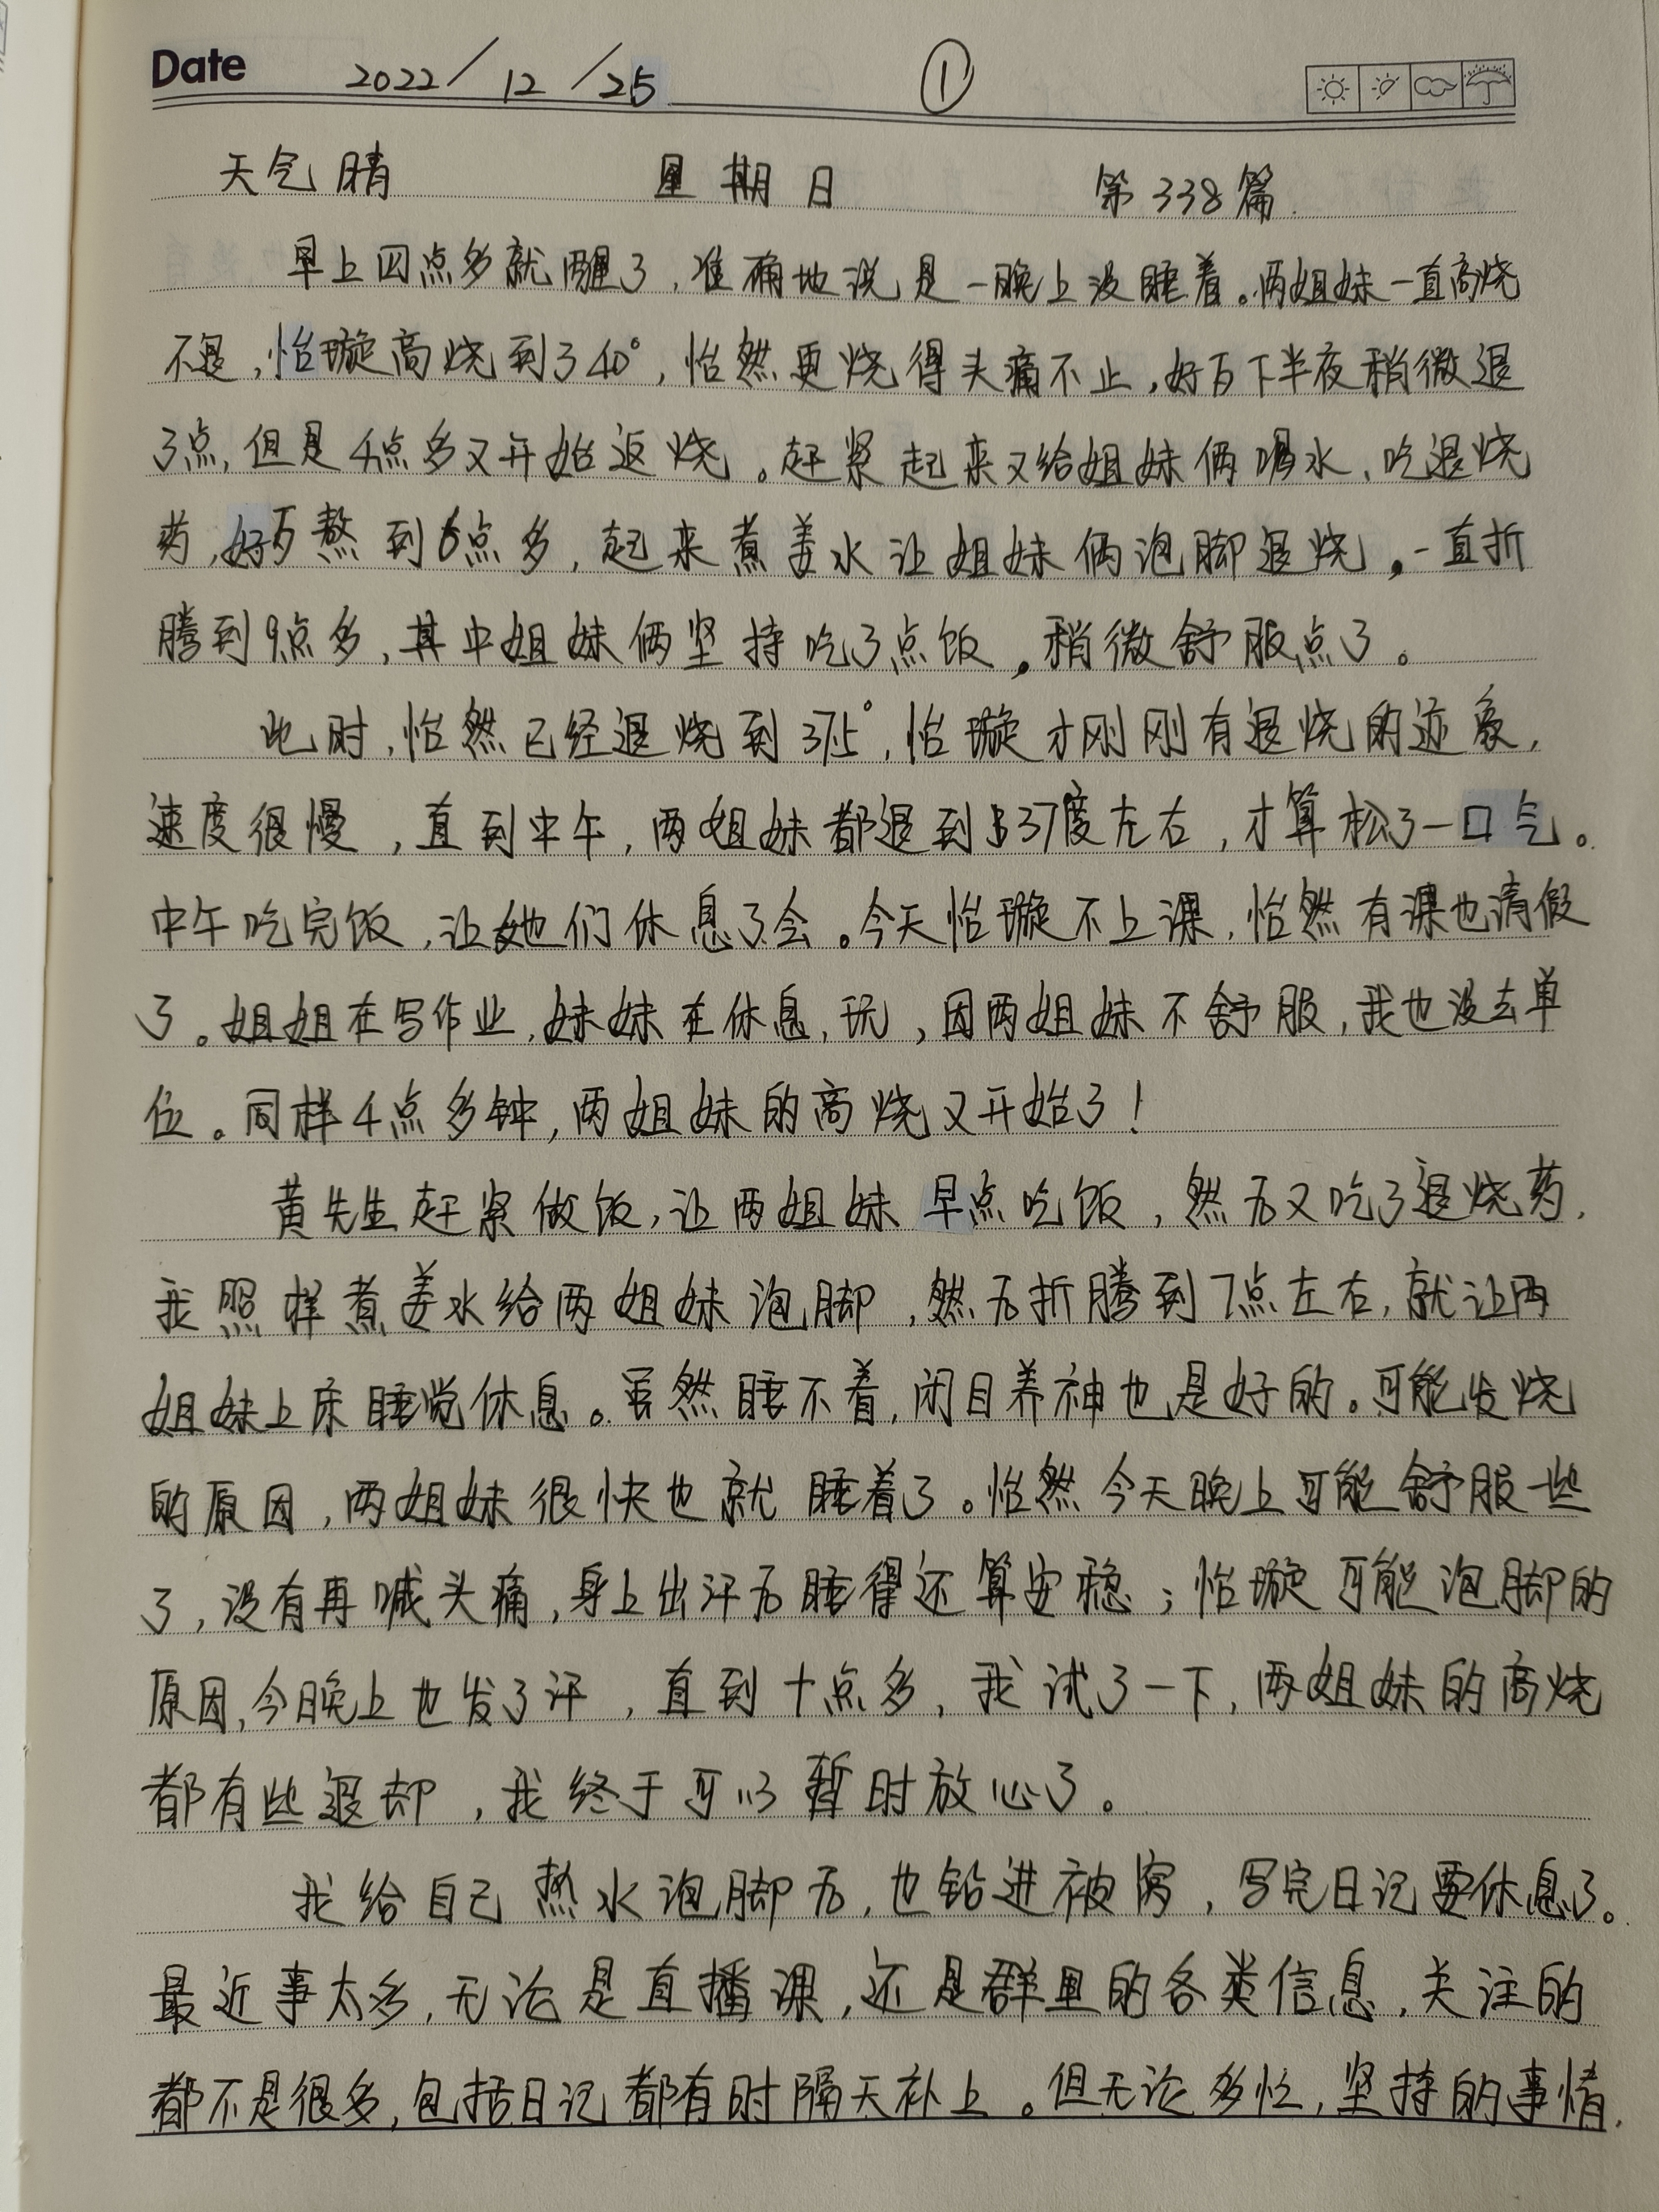 Date 2022/12/25 ①
天气晴 星期日 第338篇
早上四点多就醒了,准确地说是一晚上没睡着。两姐妹一直高烧
不退,怡璇高烧到了40°,怡然更烧得头痛不止,好在下半夜稍微退
了点,但是4点多又开始返烧。赶紧起来又给姐妹俩喝水、吃退烧
药,好歹熬到6点多,起来煮姜水让姐妹俩泡脚退烧,一直折
腾到9点多,其中姐妹俩坚持吃了点饭,稍微舒服点了。
此时,怡然已经退烧到37.5°,怡璇才刚刚有退烧的迹象,
速度很慢,直到中午,两姐妹都退到37度左右,才算松了一口气。
中午吃完饭,让她们休息了会。今天怡璇不上课,怡然有课也请假
了。姐姐在写作业,妹妹在休息,玩,因两姐妹不舒服,我也没去单
位。同样4点多钟,两姐妹的高烧又开始了!
黄先生赶紧做饭,让两姐妹早点吃饭,然后又吃了退烧药,
我照样煮姜水给两姐妹泡脚,然后折腾到7点左右,就让两
姐妹上床睡觉休息。虽然睡不着,闭目养神也是好的。可能发烧
的原因,两姐妹很快也就睡着了。怡然今天晚上可能舒服一些
了,没有再喊头痛,身上出汗后睡得还算安稳;怡璇可能泡脚的
原因,今晚上也发了汗,直到十点多,我试了一下,两姐妹的高烧
都有些退却,我终于可以暂时放心了。
我给自己热水泡脚后,也钻进被窝,写完日记要休息了。
最近事太多,无论是直播课,还是群里的各类信息,关注的
都不是很多,包括日记都有时隔天补上。但无论多忙,坚持的事情,